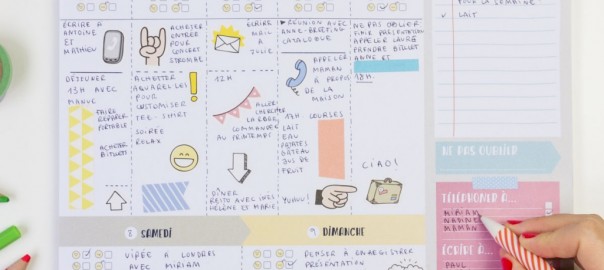 ÉCRIRE À
ANTOINE
ET
MATHIEU
DÉJEUNER
13H AVEC
MANUE
FAIRE
RÉPARER
PORTABLE
ACHETER
BILLETS
ACHETER
ENTRÉE
POUR
CONCERT
STROMAE
ACHETER
AQUARELLES
POUR
CUSTOMISER
TEE-SHIRT
SOIRÉE
RELAX
ÉCRIRE
MAIL
À
JULIE
12H
ALLER
CHERCHER
LA ROBE
COMMANDÉE
AU PRINTEMPS
DÎNER
RESTO AVEC INÈS
HÉLÈNE ET MARIE
RÉUNION AVEC
CATALOGUE
APPELER
MAMAN
À PROPOS
DE LA
MAISON
17H COURSES
LAIT
EAU
PATATES
GÂTEAU
JUS DE
FRUIT
YUHUU!
NE PAS OUBLIER
PRÉSENTATION
APPELER LAURE
PRENDRE BILLET
18H.
CIAO!
SAMEDI
VIRÉE À LONDRES
AVEC MIRIAM
DIMANCHE
PENSER À ENREGISTRER
PRÉSENTATION
LA SEMAINE!
✓ LAIT
NE PAS OUBLIER
TÉLÉPHONER À...
MIRIAM
MAMAN
ÉCRIRE À...
PAUL